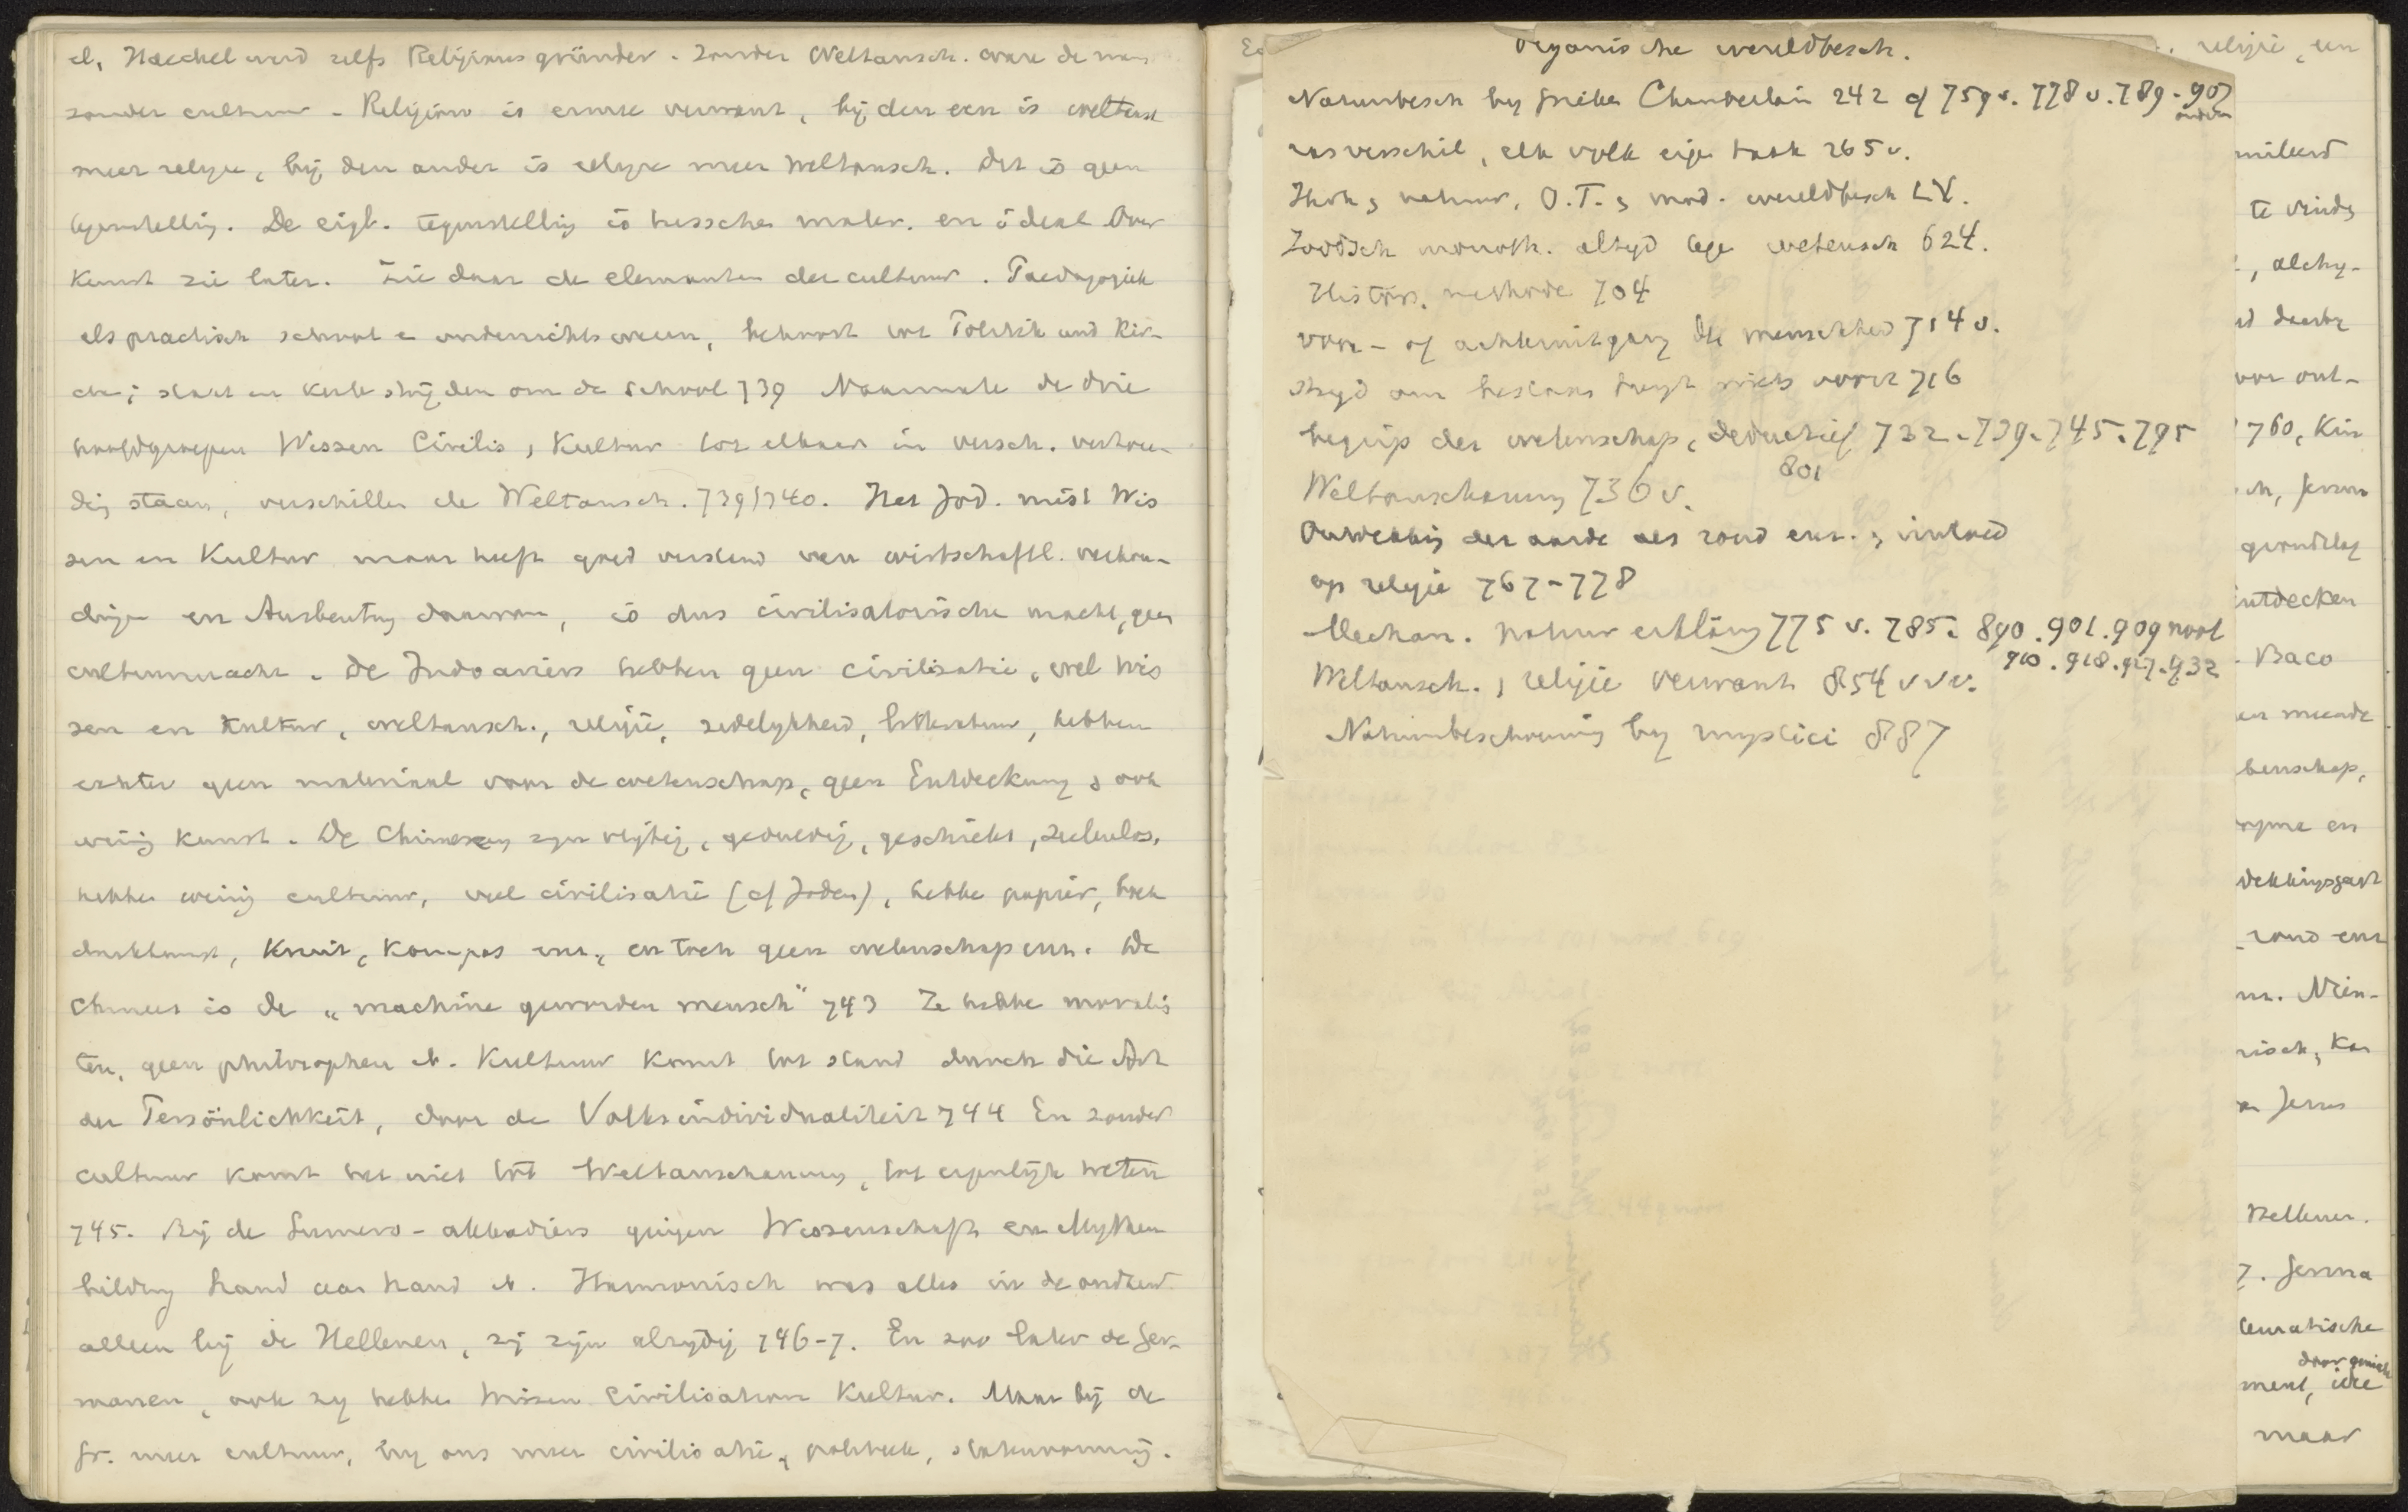 ib, Haeckel werd zelfs Religionsgründer. Zonder Weltansch. ware de mens
zonder cultuur. Religion is ermee verwant, bij den een is weltansch
meer religie, bij den ander is religie meer Weltansch. Dit is geen
tegenstelling. De eigl. tegenstelling is tusschen mater. en ideal. Over
kunst zie later. Zie daar de elementen der cultuur. Paedagogiek
als practisch school en onderwijswezen, behoort tot Politik und Kir-
che; staat en kerk strijden om de school 739 Naarmate de drie
hoofdgroepen Wissen Civilis, Kultur tot elkaar in versch. verhou-
ding staan, verschillen de Weltansch. 739/740. Het Jod. mist Wis
sen en Kultur maar heeft goed verstand van wirtschaftl. verhou-
dingen en Ausbeutung daarvan, is dus civilisatorische macht, geen
cultuurmacht. De Indoariërs hebben geen civilisatie, wel Wis
sen en Kultur, weltansch., religie, zedelijkheid, litteratuur, hebben
echter geen materiaal voor de wetenschap, geen Entdeckung, ook
weinig kunst. De Chineezen zijn vlijtig, geduldig, geschickt, seelenlos,
hebben weinig cultuur, veel civilisatie (cf Joden), hebben papier, boek
drukkunst, Kruit, Kompas enz., en toch geen wetenschap enz. De
Chinees is de „machine geworden mensch" 743 Ze hebbe moralis
ten, geen philosophen ib. Kultuur komt tot stand durch die Art
der Persönlichkeit, door de Volksindividualiteit 744 En zonder
cultuur komt het niet tot Weltanschauung, tot eigenlijk weten
745. Bij de Sumero-akkadiërs gingen Wissenschaft en Mythen
bildung hand aan hand ib. Harmonisch was alles in de oudheid
alleen bij de Hellenen, zij zijn alzijdig 746-7. En zoo later de Ger-
manen, ook zij hebben Wissen Civilisation Kultur. Maar bij de
Gr. meer cultuur, bij ons meer civilisatie, politiek, staatsvorming.
Organische wereldbesch.
Natuurbesch by Grieken Chamberlain 242 cf 759 v. 778 v. 789 - 907
rasverschil, elk volk eigen taak 265 v.
O.T. mod. wereldbesch LV.
Joodsch monoth. altijd tege wetensch 624.
Histor. methode 704
voor- of achteruitgang der menschheid 714 v.
strijd om bestaan brengt niets voort 716
begrip der wetenschap, deductief 732. 739. 745. 795
801
Weltanschauung 736 v.
Ontdekking der aarde als rond enz. invloed
op religie 767-778
Mechan. natuurerklärung 775 v. 785. 890. 901. 909 noot
910. 918. 927. 932
Weltansch., religie verwant 854 vvv.
Natuurbeschouwing by mystici 887
religie, een
te vinden
, alchy-
daarbij
ont-
760, Kur
grondslag
Entdecken
Baco
meende
tenschap,
rond enz
Nien-
risch,
Jesus
Hellenen.
7. Germa
door
ment, idee
maar